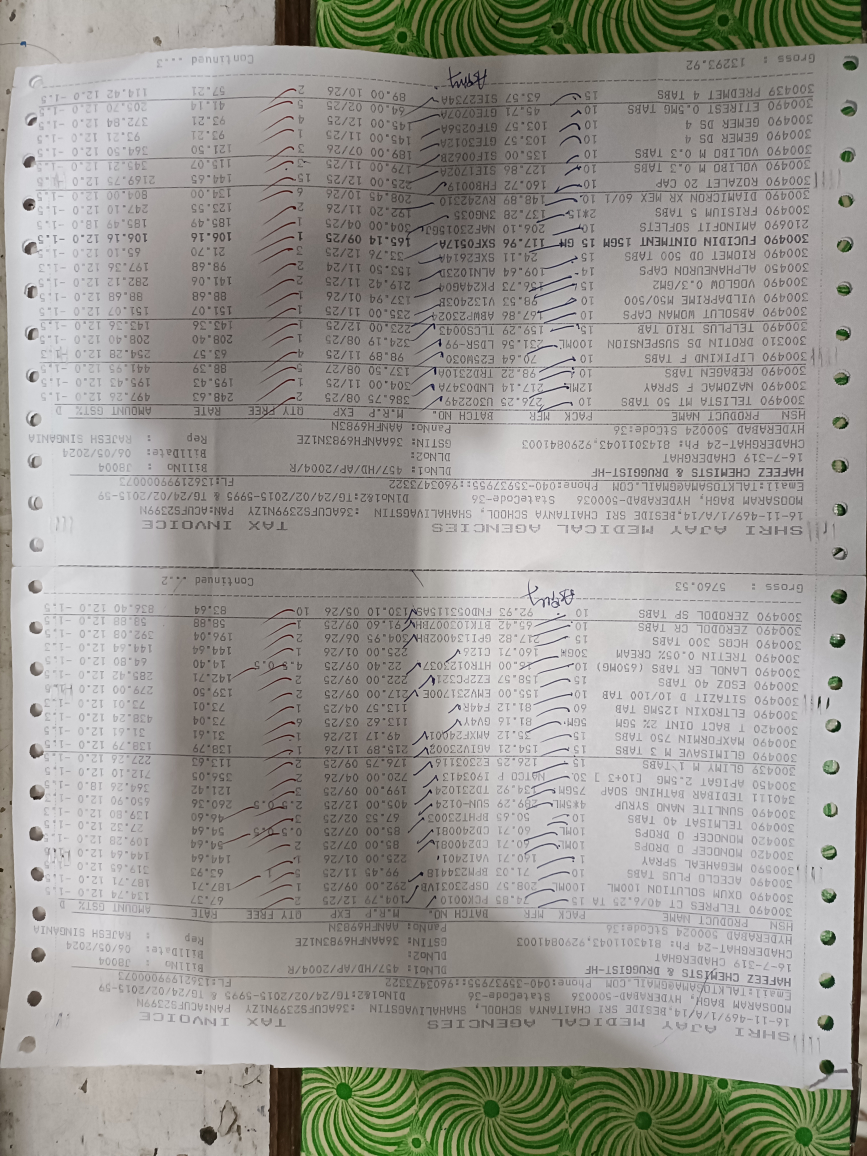 SHRI AJAY MEDICAL AGENCIES TAX INVOICE
16-11-469/1/A/14,BESIDE SRI CHAITANYA SCHOOL, SHAHALIVAGSTIN :36ACUFS2399N1ZY PAN:ACUFS2399N
MOOSARAM BAGH, HYDERABAD-500036 StateCode-36 DlNo1&2:TG/24/02/2015-5995 & TG/24/02/2015-59
HAFEEZ CHEMISTS & DRUGGIST-HF DLNo1: 457/HD/AP/2004/R BillNo : J8004
16-7-319 CHADERGHAT DLNo2: BillDate: 06/05/2024
CHADERGHAT-24 Ph: 8143011043,9290841003 GSTIN: 36AANFH6983N1ZE Rep : RAJESH SINGANIA
HYDERABAD 500024 StCode:36 PanNo: AANFH6983N
HSN PRODUCT NAME PACK MFR BATCH NO. M.R.P EXP QTY FREE RATE AMOUNT GST% D
300490 TELPRES CT 40/6.25 TA 15 74.85 PCT0010 104.79 12/25 2 67.37 134.74 12.0 -1.5
300490 OXUM SOLUTION 100ML 100ML 208.57 292.00 09/25 1 187.71 187.71 12.0 -1.5
300490 ACECLO PLUS TABS 10 71.03 99.45 11/25 5 63.93 319.65 12.0 -1.5
300590 MEGAHEAL SPRAY 1 160.71 225.00 01/26 1 144.64 144.64 12.0
300420 MONOCEF O DROPS 10ML 60.71 CD240081 85.00 07/25 2 54.64 109.28 12.0 -1.5
300420 MONOCEF O DROPS 10ML 60.71 CD240081 85.00 07/25 0.5 0.5 54.64 27.32 12.0 -1.5
300490 TELMISAT 40 TABS 10 50.65 67.53 02/25 3 46.60 139.80 12.0 -1.5
300490 SUNLITE NANO SYRUP 289.29 SUN-0124 405.00 12/25 2.5 0.5 260.36 650.90 12.0 -1.5
340111 TEDIBAR BATHING SOAP 75GM 134.92 TD231024 199.00 09/25 3 121.42 364.26 18.0 -1.5
300450 APIGAT 2.5MG [10+3 ] 30 NATCO P 1903413 720.00 04/26 2 356.05 712.10 12.0 -1.5
300439 GLIMY M 1 TABS 15 126.25 E2303116 176.75 09/25 2 113.63 227.26 12.0 -1.5
300490 GLIMISAVE M 3 TABS 15 154.21 215.89 11/26 1 138.79 138.79 12.0 -1.5
300490 MAXFORMIN 750 TABS 15 35.12 49.17 12/26 1 31.61 31.61 12.0 -1.5
300420 T BACT OINT 2% 5GM 5GM 81.16 GV4Y 113.62 03/25 6 73.04 438.24 12.0 -1.5
300490 ELTROXIN 125MG TAB 60 81.12 113.57 04/25 1 73.01 73.01 12.0 -1.3
300490 SITAZIT D 10/100 TAB 10 155.00 EMV231700E 217.00 09/25 2 139.50 279.00 12.0
300490 ESOZ 40 TABS 15 158.57 222.00 09/25 2 142.71 285.42 12.0 -1.5
300490 LANOL ER TABS (650MG) 10 16.00 HTRO123037 22.40 09/25 4.5 0.5 14.40 64.80 12.0 -1.5
300490 TRETIN 0.05% CREAM 30GM 160.71 C126 225.00 01/26 1 144.64 144.64 12.0 -1.5
300490 HCQS 300 TABS 15 217.82 304.95 06/26 2 196.04 392.08 12.0 -1.5
300490 ZERODOL CR TAB 10 65.42 BTK103007RH 91.60 09/25 1 58.88 58.88 12.0 -1.5
300490 ZERODOL SP TABS 10 92.93 FND0S3115AS 130.10 05/26 10 83.64 836.40 12.0 -1.5
Gross : 5760.53 Continued ...2
SHRI AJAY MEDICAL AGENCIES TAX INVOICE
16-11-469/1/A/14,BESIDE SRI CHAITANYA SCHOOL, SHAHALIVAGSTIN :36ACUFS2399N1ZY PAN:ACUFS2399N
MOOSARAM BAGH, HYDERABAD-500036 StateCode-36 DlNo1&2:TG/24/02/2015-5995 & TG/24/02/2015-59
HAFEEZ CHEMISTS & DRUGGIST-HF DLNo1: 457/HD/AP/2004/R BillNo : J8004
16-7-319 CHADERGHAT DLNo2: BillDate: 06/05/2024
CHADERGHAT-24 Ph: 8143011043,9290841003 GSTIN: 36AANFH6983N1ZE Rep : RAJESH SINGANIA
HYDERABAD 500024 StCode:36 PanNo: AANFH6983N
HSN PRODUCT NAME PACK MFR BATCH NO. M.R.P EXP QTY FREE RATE AMOUNT GST% D
300490 TELISTA MT 50 TABS 10 276.25 U302249 386.75 08/25 2 248.63 497.26 12.0 -1.5
300490 NAZOMAC F SPRAY 12ML 217.14 LND0347A 304.00 11/25 1 195.43 195.43 12.0 -1.5
300490 REBAGEN TABS 10 98.22 TRI0210A 137.50 08/27 5 88.39 441.95 12.0 -1.5
300490 LIPIKIND F TABS 10 70.64 E25W030 98.89 11/25 4 63.57 254.28 12.0 -1.3
310390 DROTIN DS SUSPENSION 100ML 231.56 LDSR-99 324.19 08/25 1 208.40 208.40 12.0 -1.5
300490 TELPLUS TRIO TAB 15 159.29 TLCS0043 223.00 12/25 1 143.36 143.36 12.0 -1.5
300490 ABSOLUT WOMAN CAPS 10 167.86 ABWP23024 235.00 11/25 1 151.07 151.07 12.0 -1.5
300490 VILDAPRIME M50/500 10 98.53 V1324032B 137.94 01/26 1 88.68 88.68 12.0 -1.5
300490 VOGLOW 0.3/GM2 15 156.73 PK24460A 219.42 11/25 2 141.06 282.12 12.0 -1.5
300450 ALPHANEURON CAPS 14 109.64 ALN1023D 153.50 11/24 2 98.68 197.36 12.0 -1.3
300490 RIOMET OD 500 TABS 15 24.11 SXE2614A 33.76 12/25 3 21.70 65.10 12.0 -1.5
300490 FUCIDIN OINTMENT 15GM 15 GM 117.96 SXF0517A 165.14 09/25 1 106.16 106.16 12.0 -1.5
210690 AMINOFIT SOFLETS 10 206.10 304.00 04/25 1 185.49 185.49 18.0 -1.5
300490 FRISIUM 5 TABS 2*15 137.28 3NG035 192.20 11/26 2 123.55 247.10 12.0 -1.5
300490 DIAMICRON XR MEX 60/1 10 148.89 RVZ42310 208.45 10/26 6 134.00 804.00 12.0 -1.5
300490 ROZALET 20 CAP 10 160.72 FHR8019 225.00 12/25 15 144.65 2169.75 12.0 -1.5
300490 VOLIBO M 0.3 TABS 10 127.86 SIE1702A 179.00 11/25 3 115.07 345.21 12.0 -1.5
300490 VOLIBO M 0.3 TABS 10 135.00 SIF0062B 189.00 07/26 3 121.50 364.50 12.0 -1.5
300490 GEMER DS 4 10 103.57 GTE3012A 145.00 11/25 1 93.21 93.21 12.0 -1.5
300490 GEMER DS 4 10 103.57 GTF0256A 145.00 12/25 4 93.21 372.84 12.0 -1.5
300490 ETIREST 0.5MG TABS 10 45.71 GTE0707A 64.00 02/25 5 41.14 205.70 12.0 -1.5
300439 PREDMET 4 TABS 15 63.57 SIE2734A 89.00 10/26 2 57.21 114.42 12.0 -1.5
Gross : 13293.92 Continued ...3